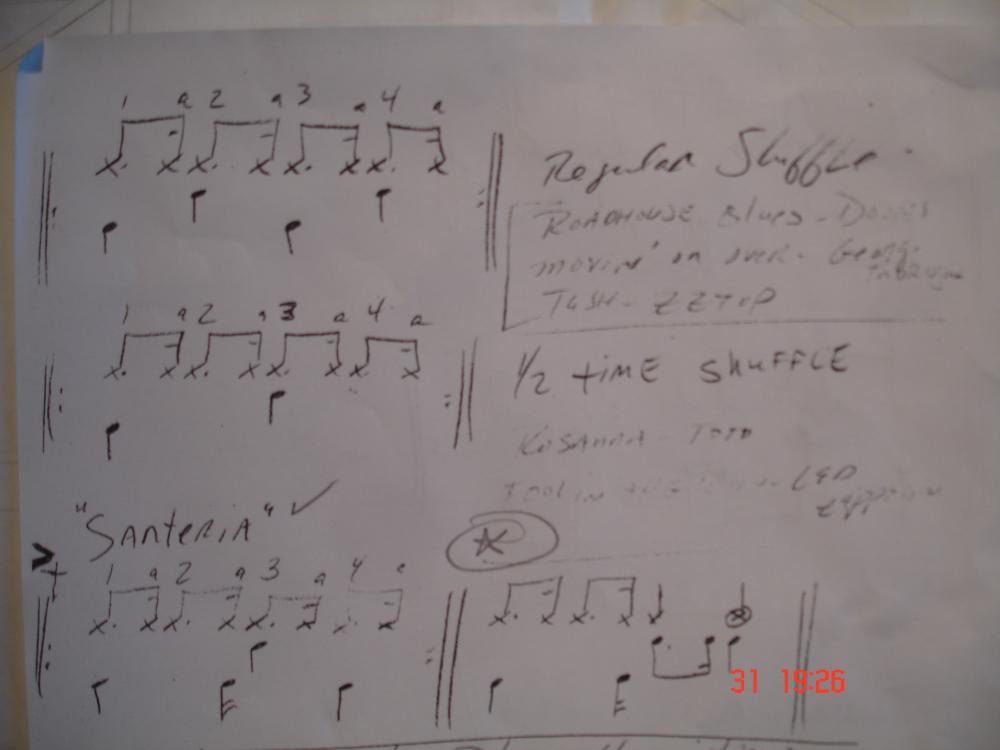 1 a 2 a 3 a 4 a
Regular Shuffle
ROADHOUSE Blues - Doors
movin' on over - George
TUSH - ZZTOP
1 a 2 a 3 a 4 a
1/2 TIME SHUFFLE
ROSANNA - TOTO
LED
Zeppelin
"SANTERIA" ✓
1 a 2 a 3 a 4 a
31 19:26